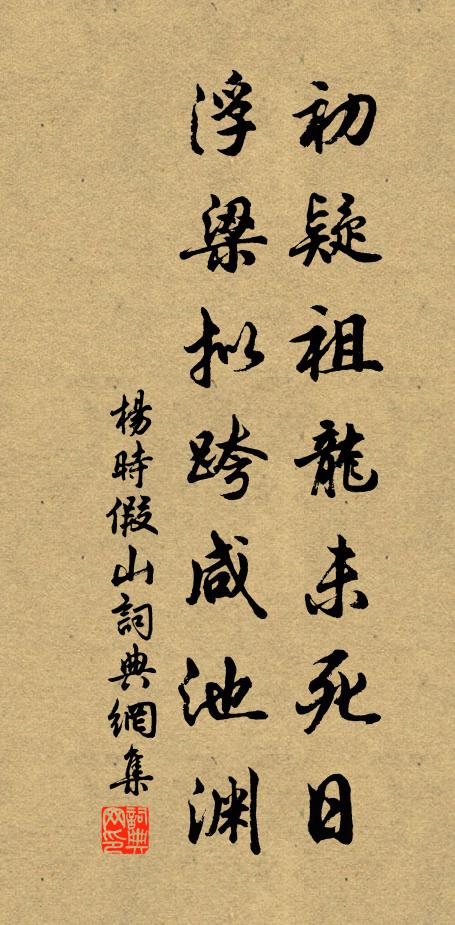 初疑祖龍未死日
浮梁拟跨咸池渊
楊時假山詞典網集
詞典网印